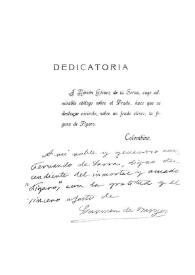 DEDICATORIA
A Ramón Gómez de la Serna, cuyo ad-
mirable epílogo sobre el Prado, hace que se
destaque erecto, sobre un fondo clásico, la fi-
gura de Fígaro.
Colombine.
A mi noble y generoso
Fernando de Larra, digno des-
cendiente del inmortal y amado
"Fígaro", con la gratitud y el
sincero afecto de
Carmen de Burgos